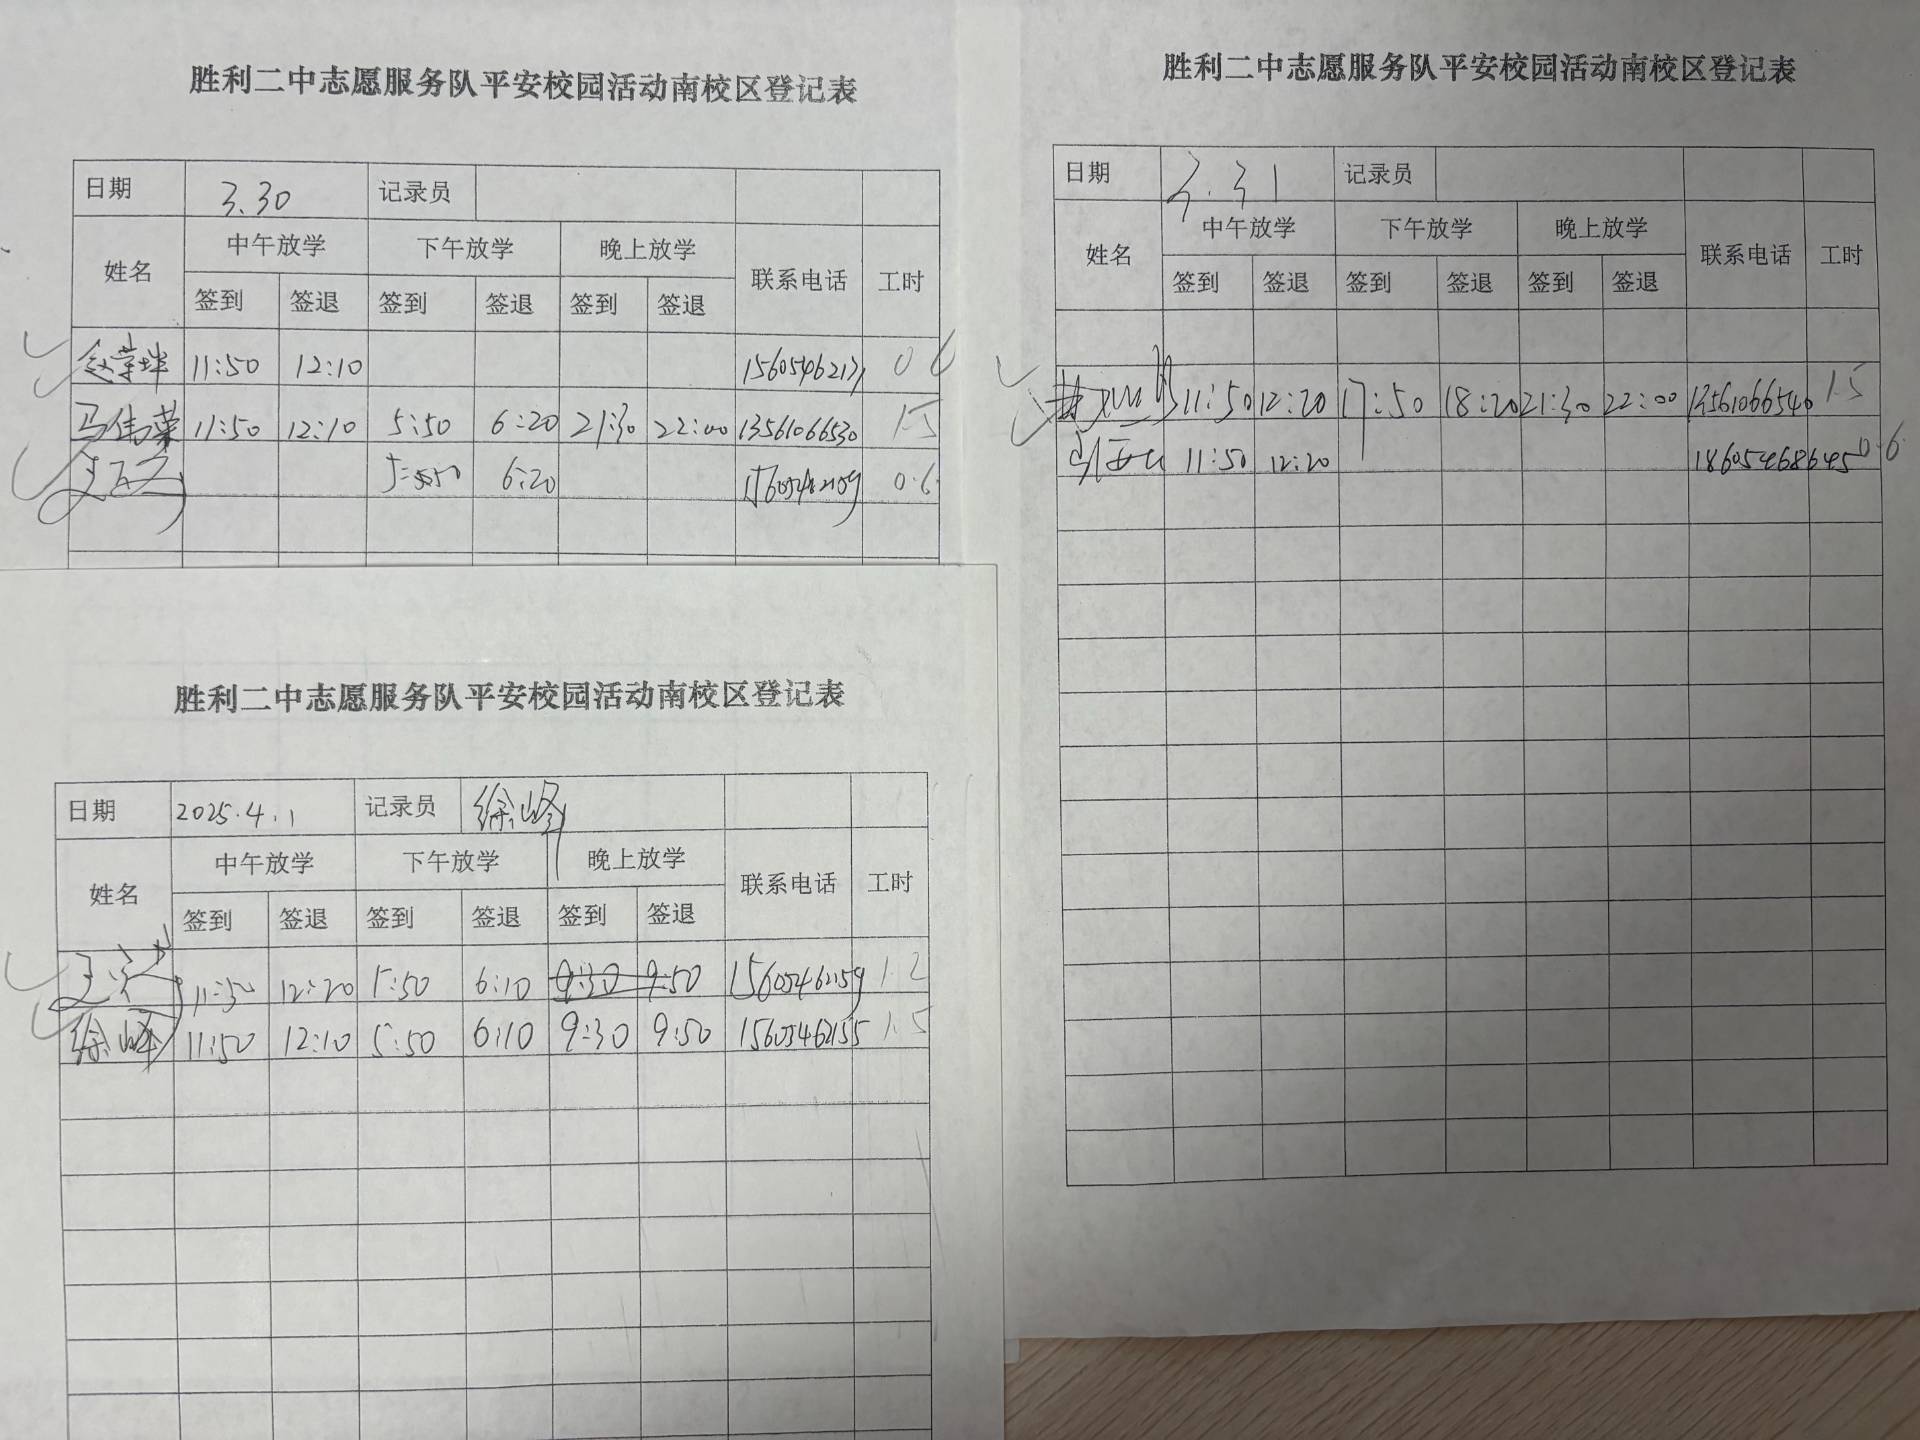 胜利二中志愿服务队平安校园活动南校区登记表
日期 3.30 记录员
姓名 中午放学 下午放学 晚上放学 联系电话 工时
签到 签退 签到 签退 签到 签退
11:50 12:10 0.6
马伟荣 11:50 12:10 5:50 6:20 21:30 22:00 13561066530 1.5
6:20 15605462159 0.6
胜利二中志愿服务队平安校园活动南校区登记表
日期 3.31 记录员
姓名 中午放学 下午放学 晚上放学 联系电话 工时
签到 签退 签到 签退 签到 签退
11:50 12:20 17:50 18:20 21:30 22:00 13561066540 1.5
11:50 12:20 18605468645 0.6
胜利二中志愿服务队平安校园活动南校区登记表
日期 2025.4.1 记录员 徐峰
姓名 中午放学 下午放学 晚上放学 联系电话 工时
签到 签退 签到 签退 签到 签退
11:50 12:20 5:50 6:10 9:30 9:50 15605462159 1.2
徐峰 11:50 12:10 5:50 6:10 9:30 9:50 15605462155 1.5